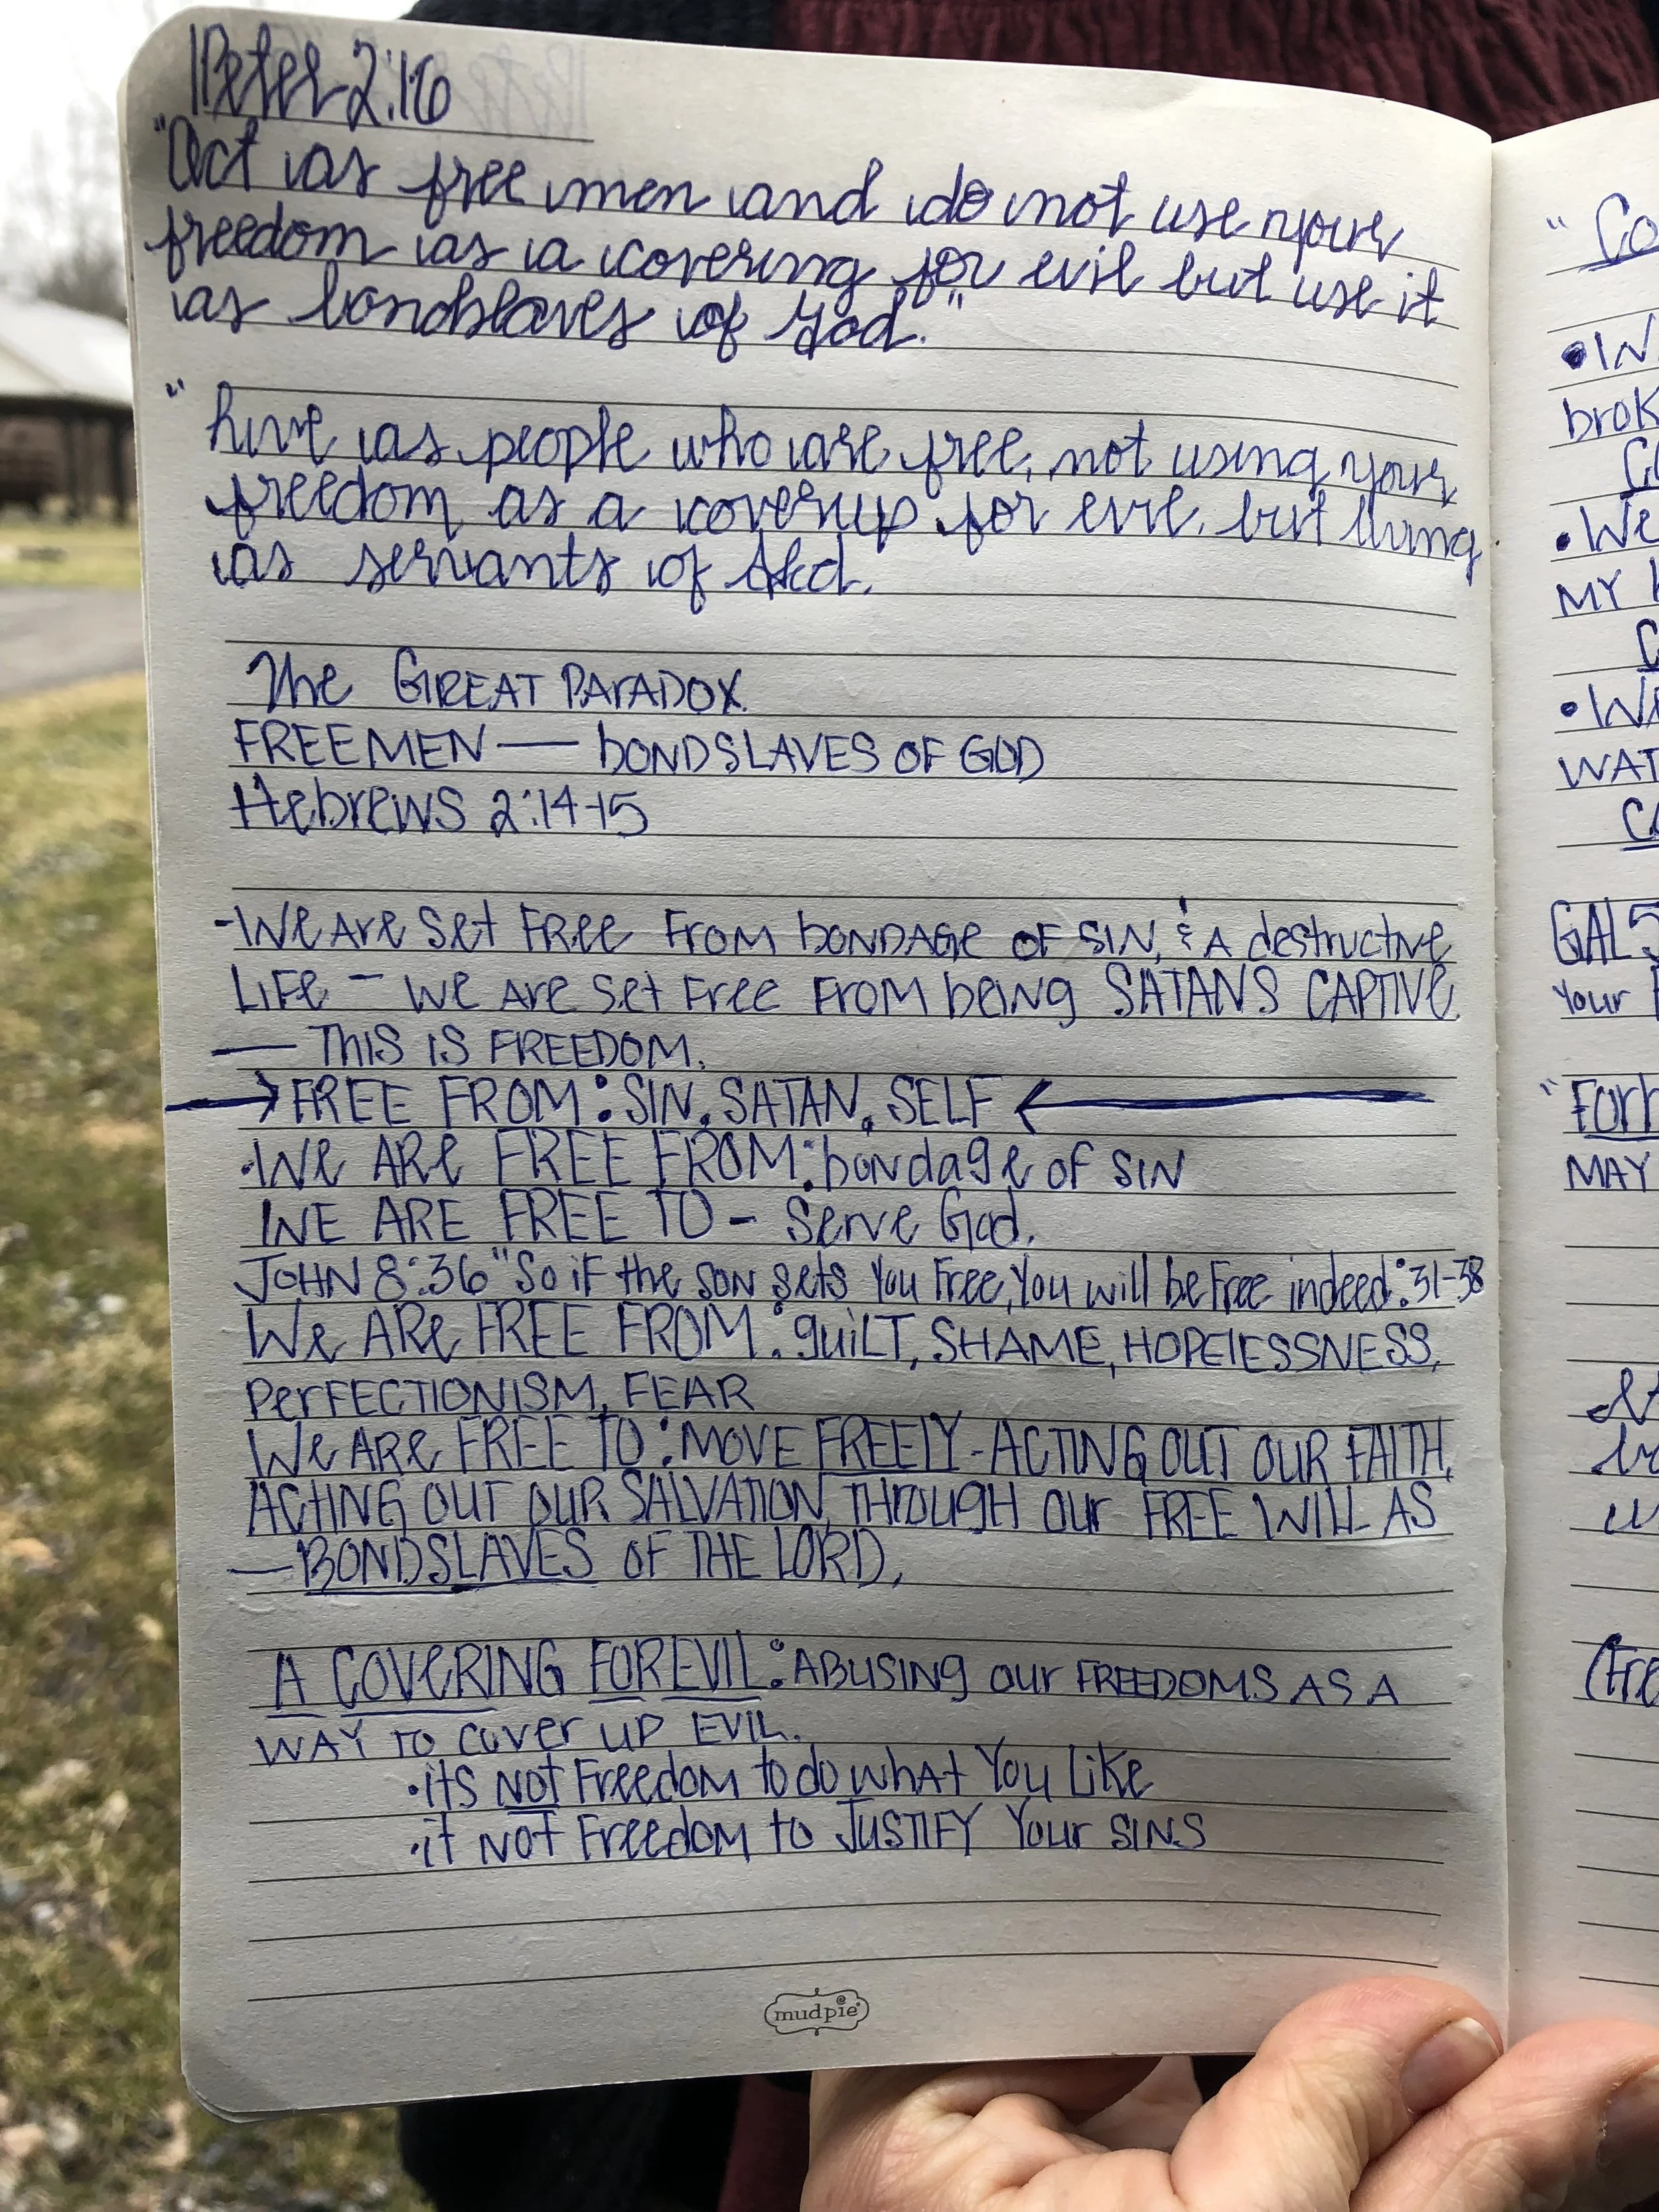 1Peter 2:16
"Act as free men and do not use your
freedom as a covering for evil but use it
as bondslaves of God."
"Live as people who are free, not using your
freedom as a coverup for evil, but living
as servants of God.
The GREAT PARADOX
FREEMEN — bONDSLAVES OF GOD
Hebrews 2:14-15
-We Are Set Free From bONDAGe OF SIN, & A destructive
LiFe - we Are Set Free From being SATANS CAPTIVE
— THIS IS FREEDOM.
→ FREE FROM: SIN, SATAN, SELF ←
•We ARe FREE FROM: bondage of SIN
WE ARE FREE TO - Serve God.
JOHN 8:36 "So iF the SON sets You Free, You will be Free indeed: 31-38
We ARe FREE FROM: guiLT, SHAME, HOPElESSNESS,
PerFECTIONISM, FEAR
We ARe FREE TO: MOVE FREELY - ACTING OUT OUR FAITH,
ACTING OUT OUR SALVATION, THROUGH our FREE WILL AS
— BONDSLAVES OF THE LORD,
A COVERING FOR EVIL: ABUSING our FREEDOMS AS A
WAY TO cover UP EVIL.
•itS NOT Freedom to do what You Like
•it NOT Freedom to JUSTIFY Your SINS
mudpie
"Co
•W
brok
C
•We
MY
C
•W
WAT
Co
GAL 5
Your
"For
MAY
(Fre